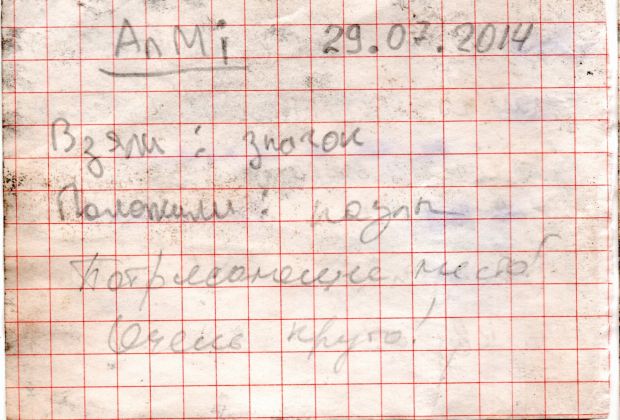 АлМi 29.07.2014
Взяли: значок
Положили: пазлы
Потрясающее место!
Очень круто!